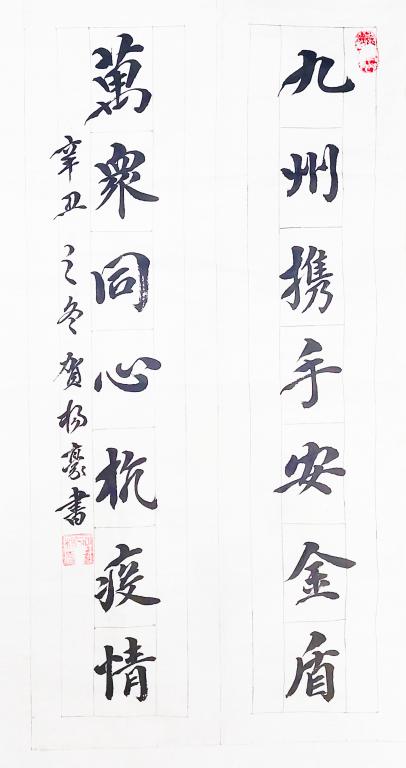 九州携手安金盾
萬衆同心抗疫情
辛丑之冬贺杨豪书